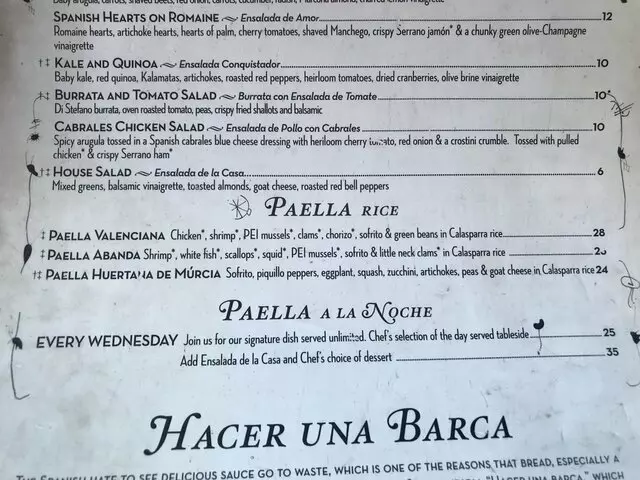 Baby arugula, carrots, shaved beets, red onion,
SPANISH HEARTS ON ROMAINE ~ Ensalada de Amor 12
Romaine hearts, artichoke hearts, hearts of palm, cherry tomatoes, shaved Manchego, crispy Serrano jamón* & a chunky green olive-Champagne
vinaigrette
†‡ KALE AND QUINOA ~ Ensalada Conquistador 10
Baby kale, red quinoa, Kalamatas, artichokes, roasted red peppers, heirloom tomatoes, dried cranberries, olive brine vinaigrette
†‡ BURRATA AND TOMATO SALAD ~ Burrata con Ensalada de Tomate 10
Di Stefano burrata, oven roasted tomato, peas, crispy fried shallots and balsamic
CABRALES CHICKEN SALAD ~ Ensalada de Pollo con Cabrales 10
Spicy arugula tossed in a Spanish cabrales blue cheese dressing with heriloom cherry tomato, red onion & a crostini crumble. Tossed with pulled
chicken* & crispy Serrano ham*
†‡ HOUSE SALAD ~ Ensalada de la Casa 6
Mixed greens, balsamic vinaigrette, toasted almonds, goat cheese, roasted red bell peppers
PAELLA RICE
‡ PAELLA VALENCIANA Chicken*, shrimp*, PEI mussels*, clams*, chorizo*, sofrito & green beans in Calasparra rice 28
‡ PAELLA ABANDA Shrimp*, white fish*, scallops*, squid*, PEI mussels*, sofrito & little neck clams* in Calasparra rice
†‡ PAELLA HUERTANA DE MÚRCIA Sofrito, piquillo peppers, eggplant, squash, zucchini, artichokes, peas & goat cheese in Calasparra rice 24
PAELLA A LA NOCHE
EVERY WEDNESDAY Join us for our signature dish served unlimited. Chef's selection of the day served tableside 25
Add Ensalada de la Casa and Chef's choice of dessert 35
HACER UNA BARCA
THE SPANISH HATE TO SEE DELICIOUS SAUCE GO TO WASTE, WHICH IS ONE OF THE REASONS THAT BREAD, ESPECIALLY A
"HACER UNA BARCA," WHICH